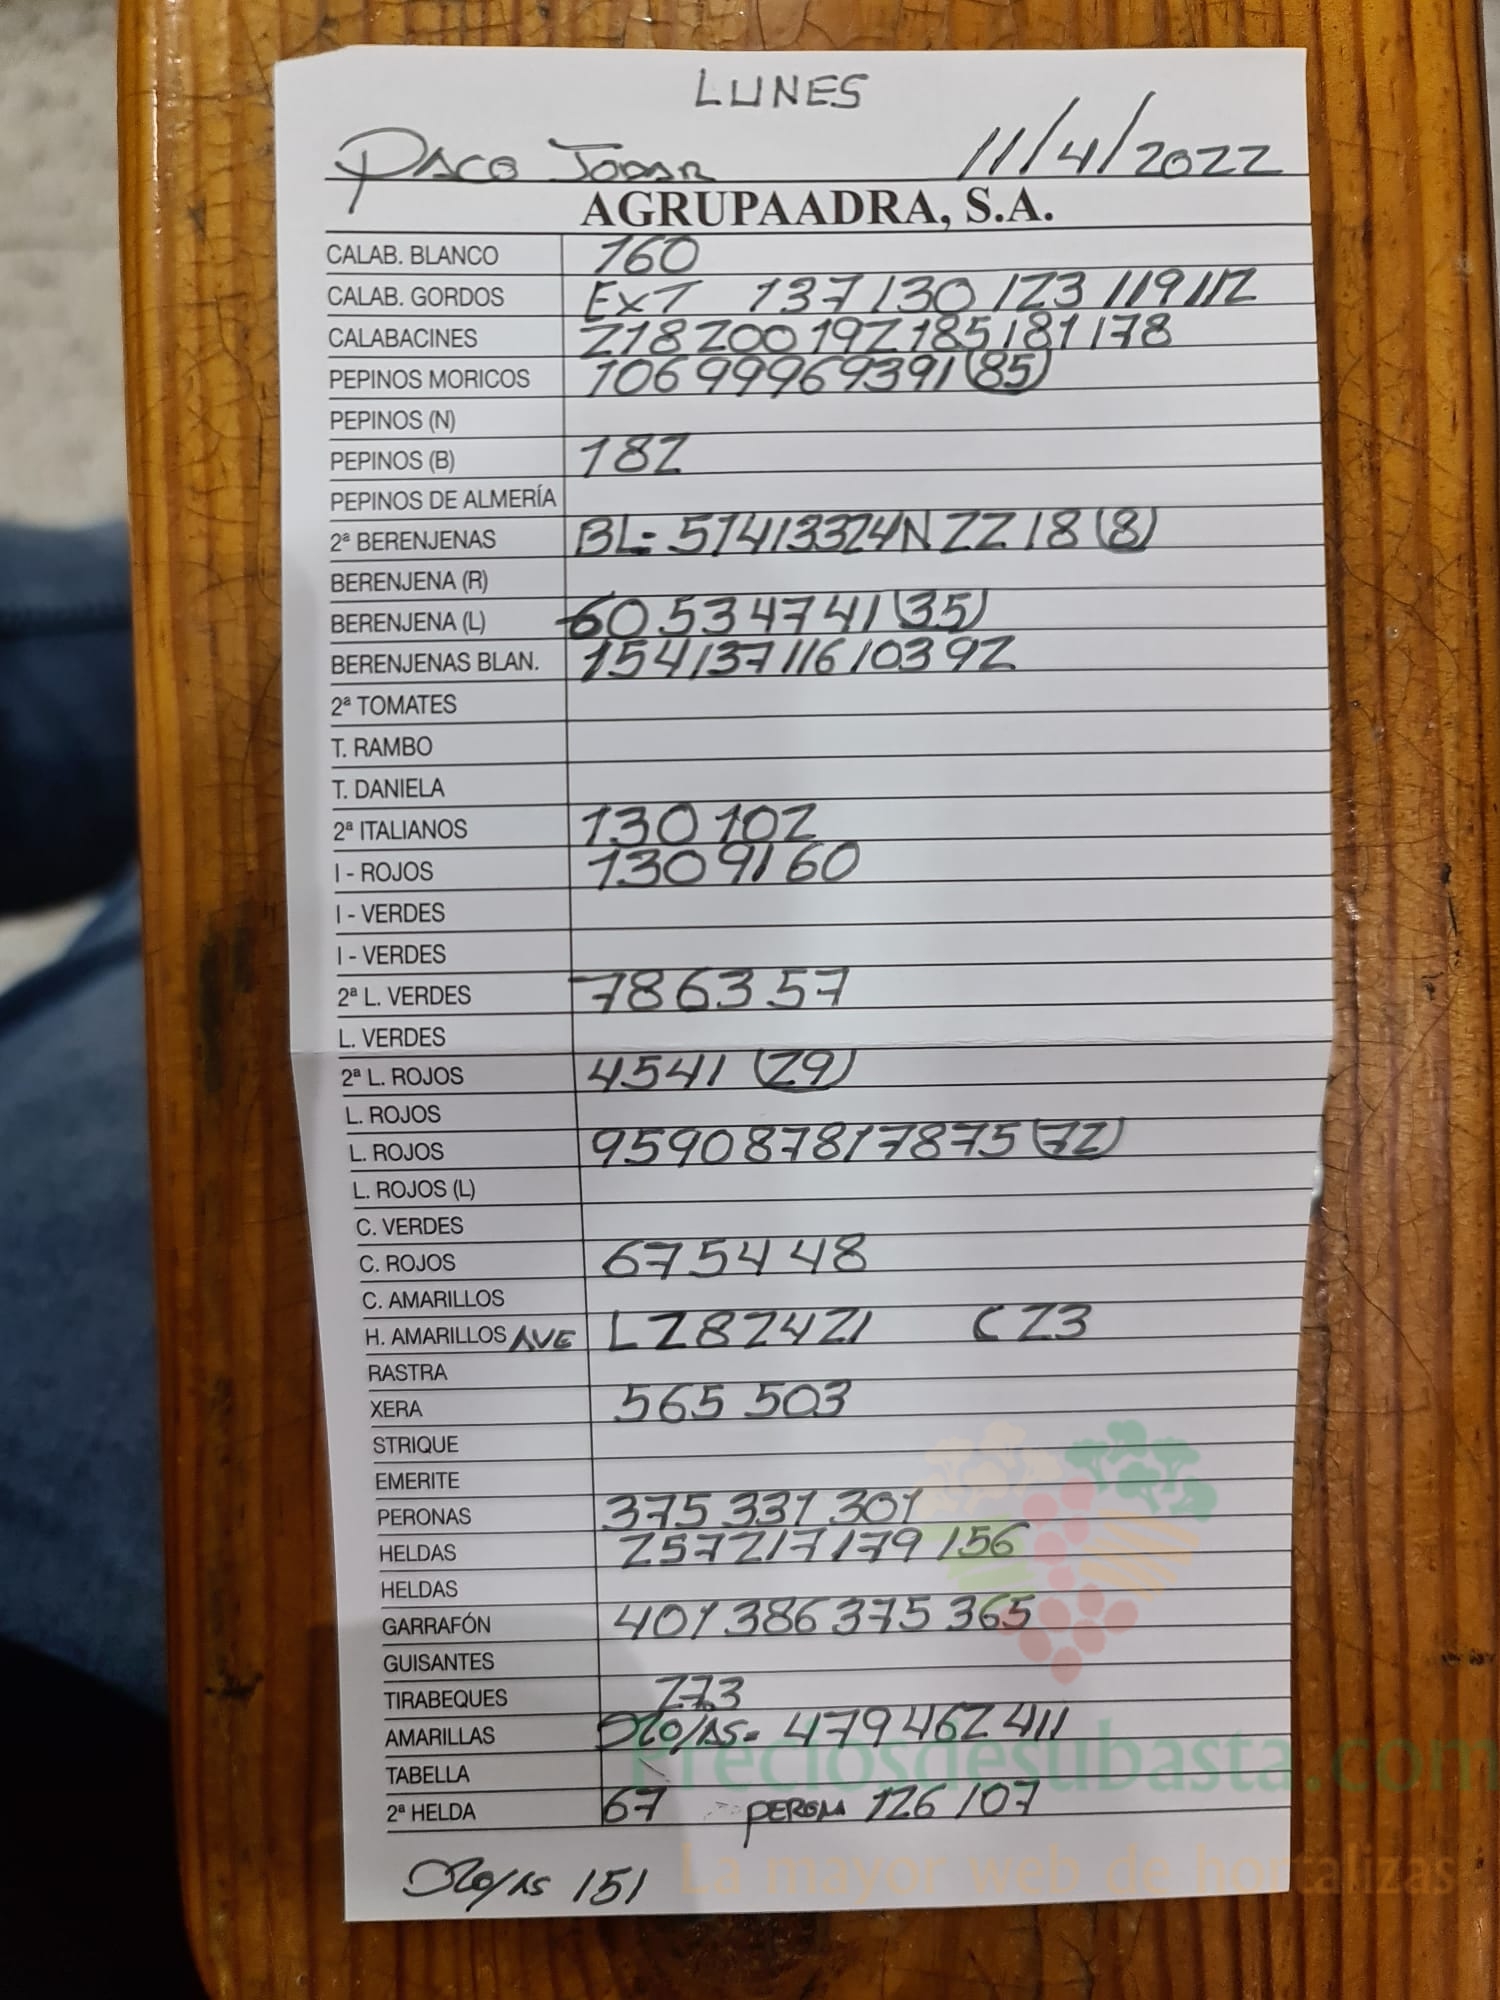 LUNES
PACO JODAR 11/4/2022
AGRUPAADRA, S.A.
CALAB. BLANCO 160
CALAB. GORDOS EXT 137 130 123 119 112
CALABACINES 218 200 192 185 181 178
PEPINOS MORICOS 106 99 96 93 91 (85)
PEPINOS (N)
PEPINOS (B) 182
PEPINOS DE ALMERÍA
2ª BERENJENAS BL= 57 41 33 24 N 22 18 (8)
BERENJENA (R)
BERENJENA (L) 60 53 47 41 (35)
BERENJENAS BLAN. 154 137 116 103 92
2ª TOMATES
T. RAMBO
T. DANIELA
2ª ITALIANOS 130 102
I - ROJOS 130 91 60
I - VERDES
I - VERDES
2ª L. VERDES 78 63 57
L. VERDES
2ª L. ROJOS 45 41 (29)
L. ROJOS
L. ROJOS 95 90 87 81 78 75 (72)
L. ROJOS (L)
C. VERDES
C. ROJOS 67 54 48
C. AMARILLOS
H. AMARILLOS AVE L 28 24 21 C 23
RASTRA
XERA 565 503
STRIQUE
EMERITE
PERONAS 375 331 301
HELDAS 257 217 179 156
HELDAS
GARRAFÓN 401 386 375 365
GUISANTES
TIRABEQUES 273
AMARILLAS 479 462 411
TABELLA
2ª HELDA 67 PERONA 126 107
151
Preciosdesubasta.com
La mayor web de hortalizas